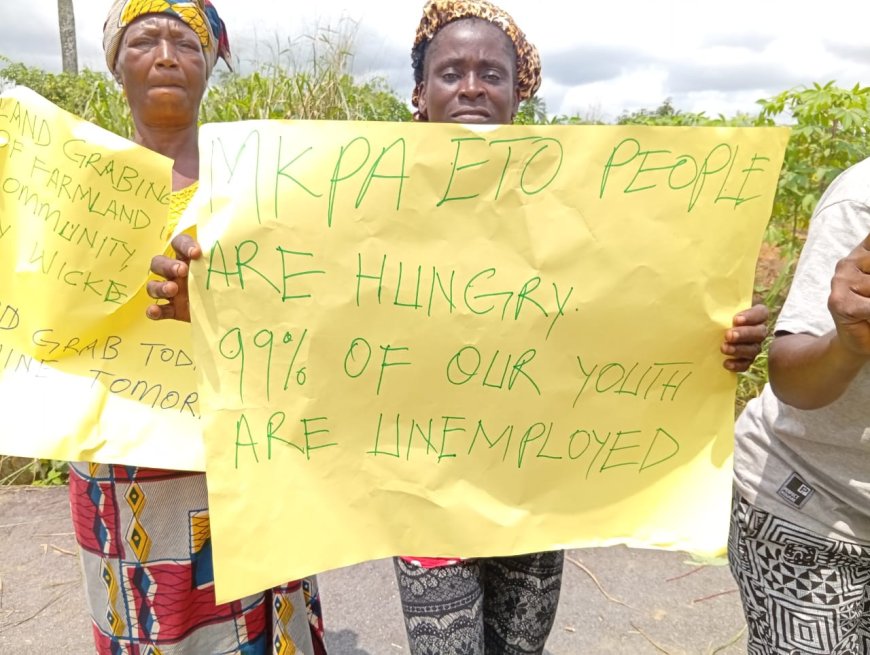 LAND GRABING
OF FARMLAND I
COMMUNITY,
WICKE
GRAB TOD
TOMOR
MKPA ETO PEOPLE
ARE HUNGRY.
99% OF OUR YOUTH
ARE UNEMPLOYED